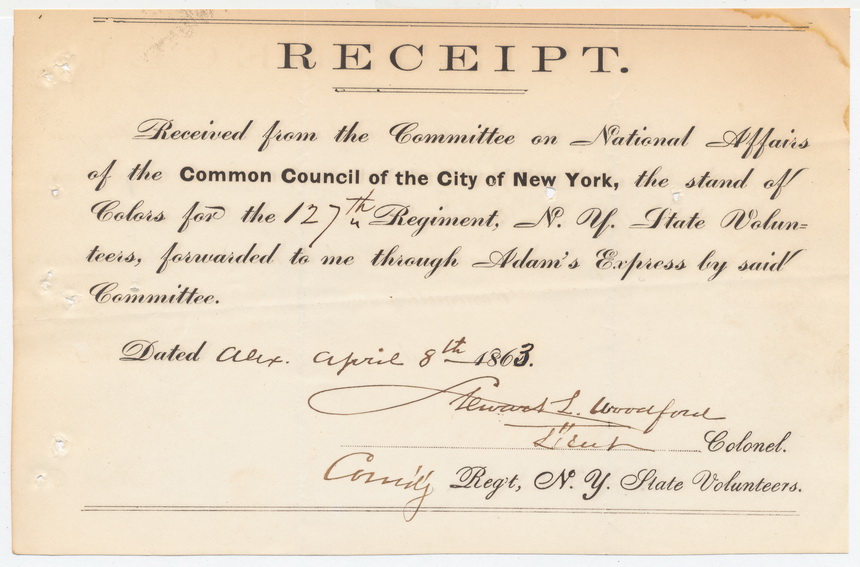 RECEIPT.
Received from the Committee on National Affairs
of the Common Council of the City of New York, the stand of
Colors for the 127th Regiment, N. Y. State Volun=
teers, forwarded to me through Adam's Express by said
Committee.
Dated Alex. April 8th 1863.
Stewart L. Woodford
Lieut Colonel.
Comdg Reg't, N. Y. State Volunteers.